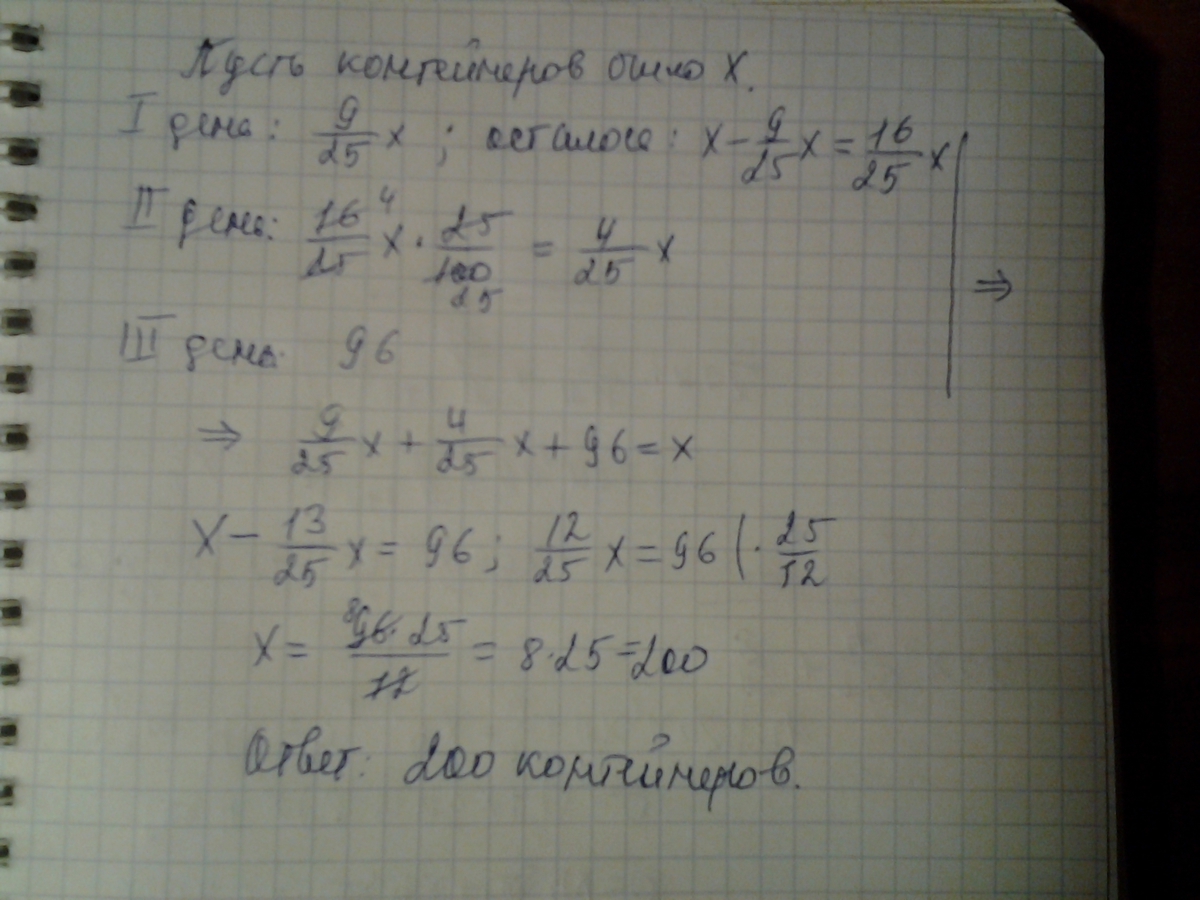 Пусть контейнеров было x.
I день: 9/25 x ; осталось: x - 9/25 x = 16/25 x
II день: 16/25 x · 25/100 = 4/25 x ⇒
4
25
III день 96
⇒ 9/25 x + 4/25 x + 96 = x
x - 13/25 x = 96; 12/25 x = 96 | · 25/12
x = 96·25/12 = 8·25 = 200
8
Ответ: 200 контейнеров.